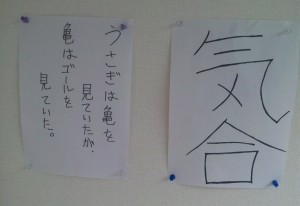 気合
うさぎは亀を
見ていたが、
亀はゴールを
見ていた。